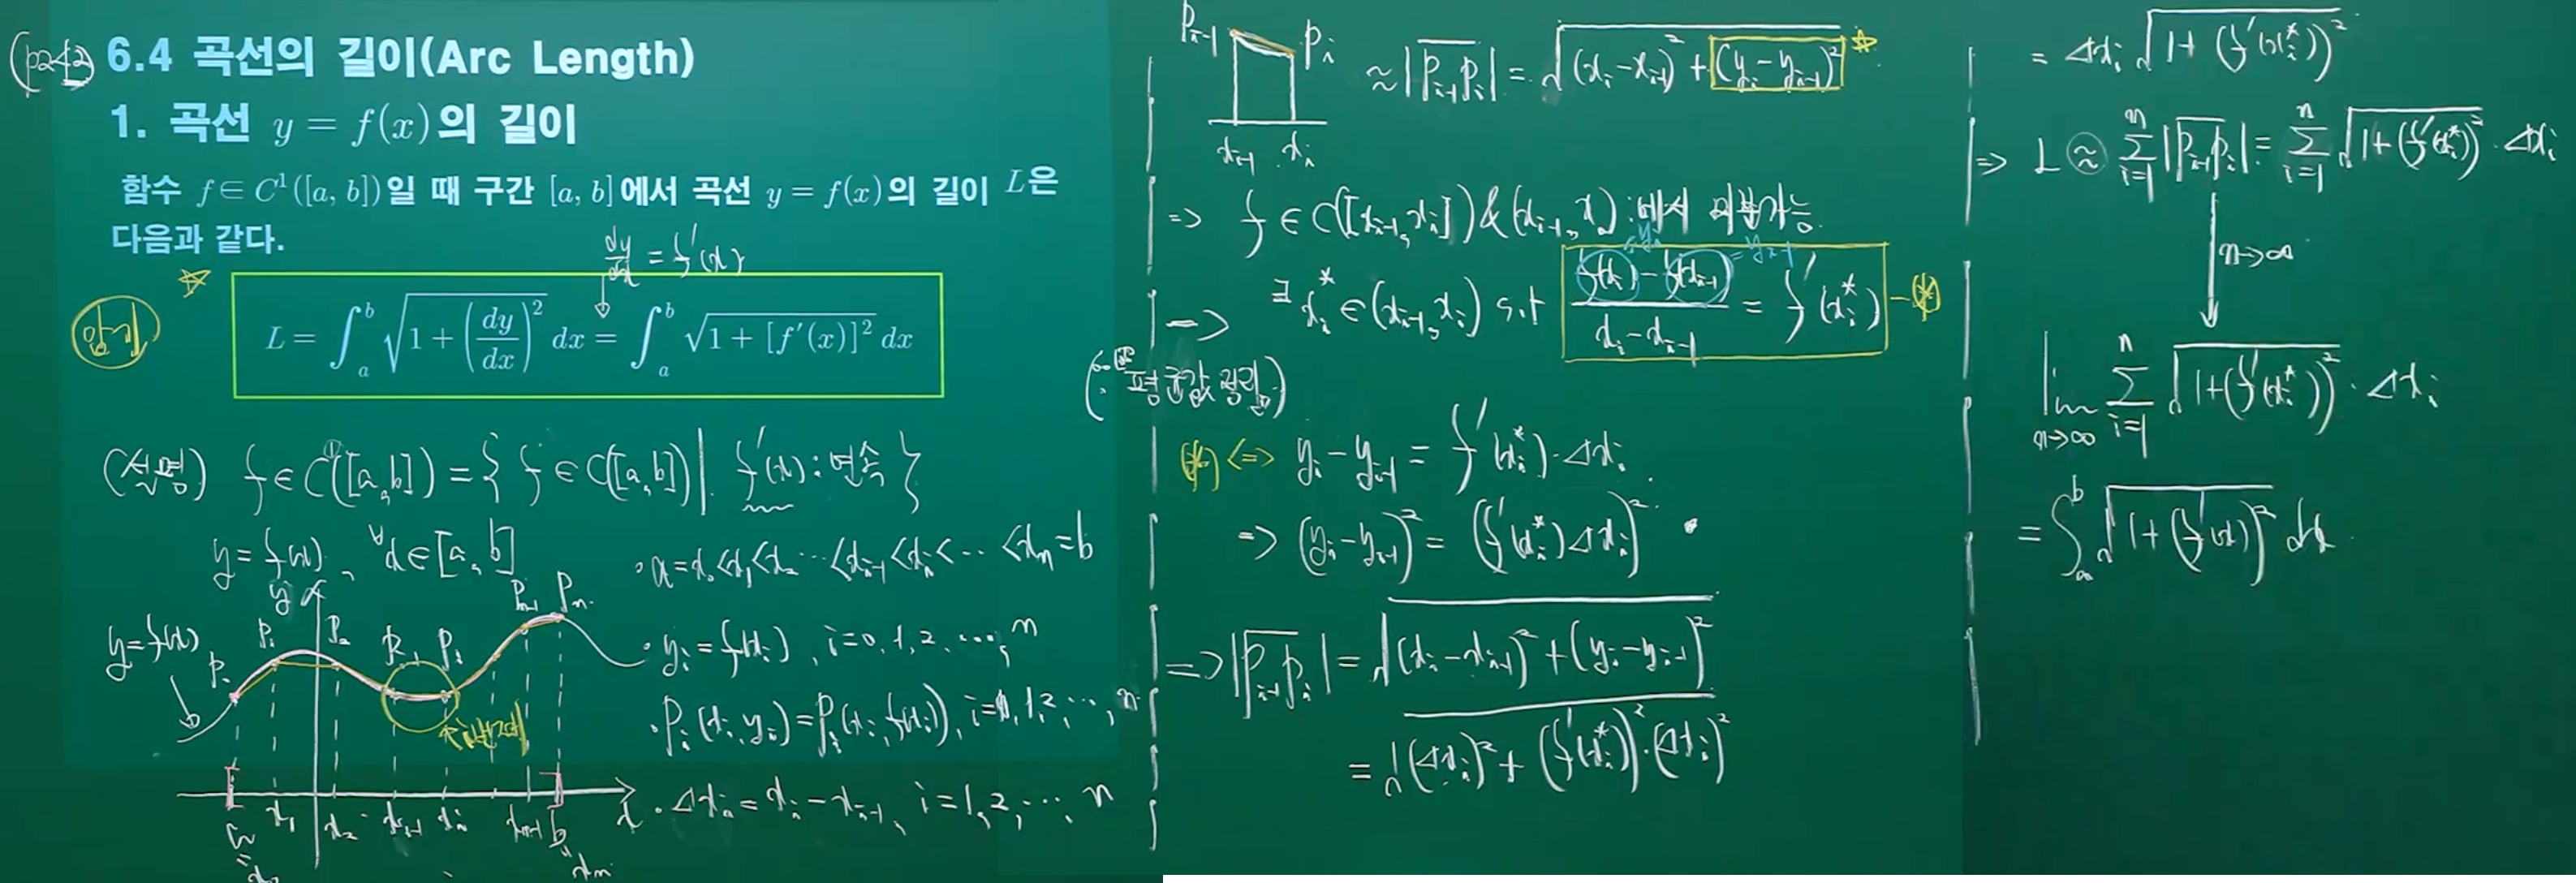 (p242) 6.4 곡선의 길이(Arc Length)
1. 곡선 y = f(x)의 길이
함수 f ∈ C¹([a, b])일 때 구간 [a, b]에서 곡선 y = f(x)의 길이 L은
다음과 같다.
dy/dx = f'(x)
☆
암기
L = ∫_a^b √(1 + (dy/dx)²) dx = ∫_a^b √(1 + [f'(x)]²) dx
(설명) f ∈ C¹([a, b]) = { f ∈ C([a, b]) | f'(x) : 연속 }
y = f(x), ∀x ∈ [a, b]
• a = x₀ < x₁ < x₂ ⋯ < x_{i-1} < x_i < ⋯ < x_n = b
y
y = f(x)
P₀ P₁ P₂ P_{i-1} P_i P_{n-1} P_n
a = x₀ x₁ x₂ x_{i-1} x_i x_{n-1} b = x_n x
• y_i = f(x_i), i = 0, 1, 2, ⋯, n
• P_i(x_i, y_i) = P_i(x_i, f(x_i)), i = 0, 1, 2, ⋯, n
• Δx_i = x_i − x_{i-1}, i = 1, 2, ⋯, n
P_{i-1} P_i
x_{i-1} x_i
≈ |P_{i-1}P_i| = √((x_i − x_{i-1})² + (y_i − y_{i-1})²) ☆
=> f ∈ C([x_{i-1}, x_i]) & (x_{i-1}, x_i) : 에서 미분가능
= y_i = y_{i-1}
=> ∃ x_i* ∈ (x_{i-1}, x_i) s.t (f(x_i) − f(x_{i-1}))/(x_i − x_{i-1}) = f'(x_i*) − (*)
(∵ 평균값 정리)
(*) <=> y_i − y_{i-1} = f'(x_i*)·Δx_i
=> (y_i − y_{i-1})² = (f'(x_i*)Δx_i)²
=> |P_{i-1}P_i| = √((x_i − x_{i-1})² + (y_i − y_{i-1})²)
= √((Δx_i)² + (f'(x_i*))²·(Δx_i)²)
= Δx_i √(1 + (f'(x_i*))²)
=> L ≈ Σ_{i=1}^n |P_{i-1}P_i| = Σ_{i=1}^n √(1 + (f'(x_i*))²)·Δx_i
n→∞
lim_{n→∞} Σ_{i=1}^n √(1 + (f'(x_i*))²)·Δx_i
= ∫_a^b √(1 + (f'(x))²) dx